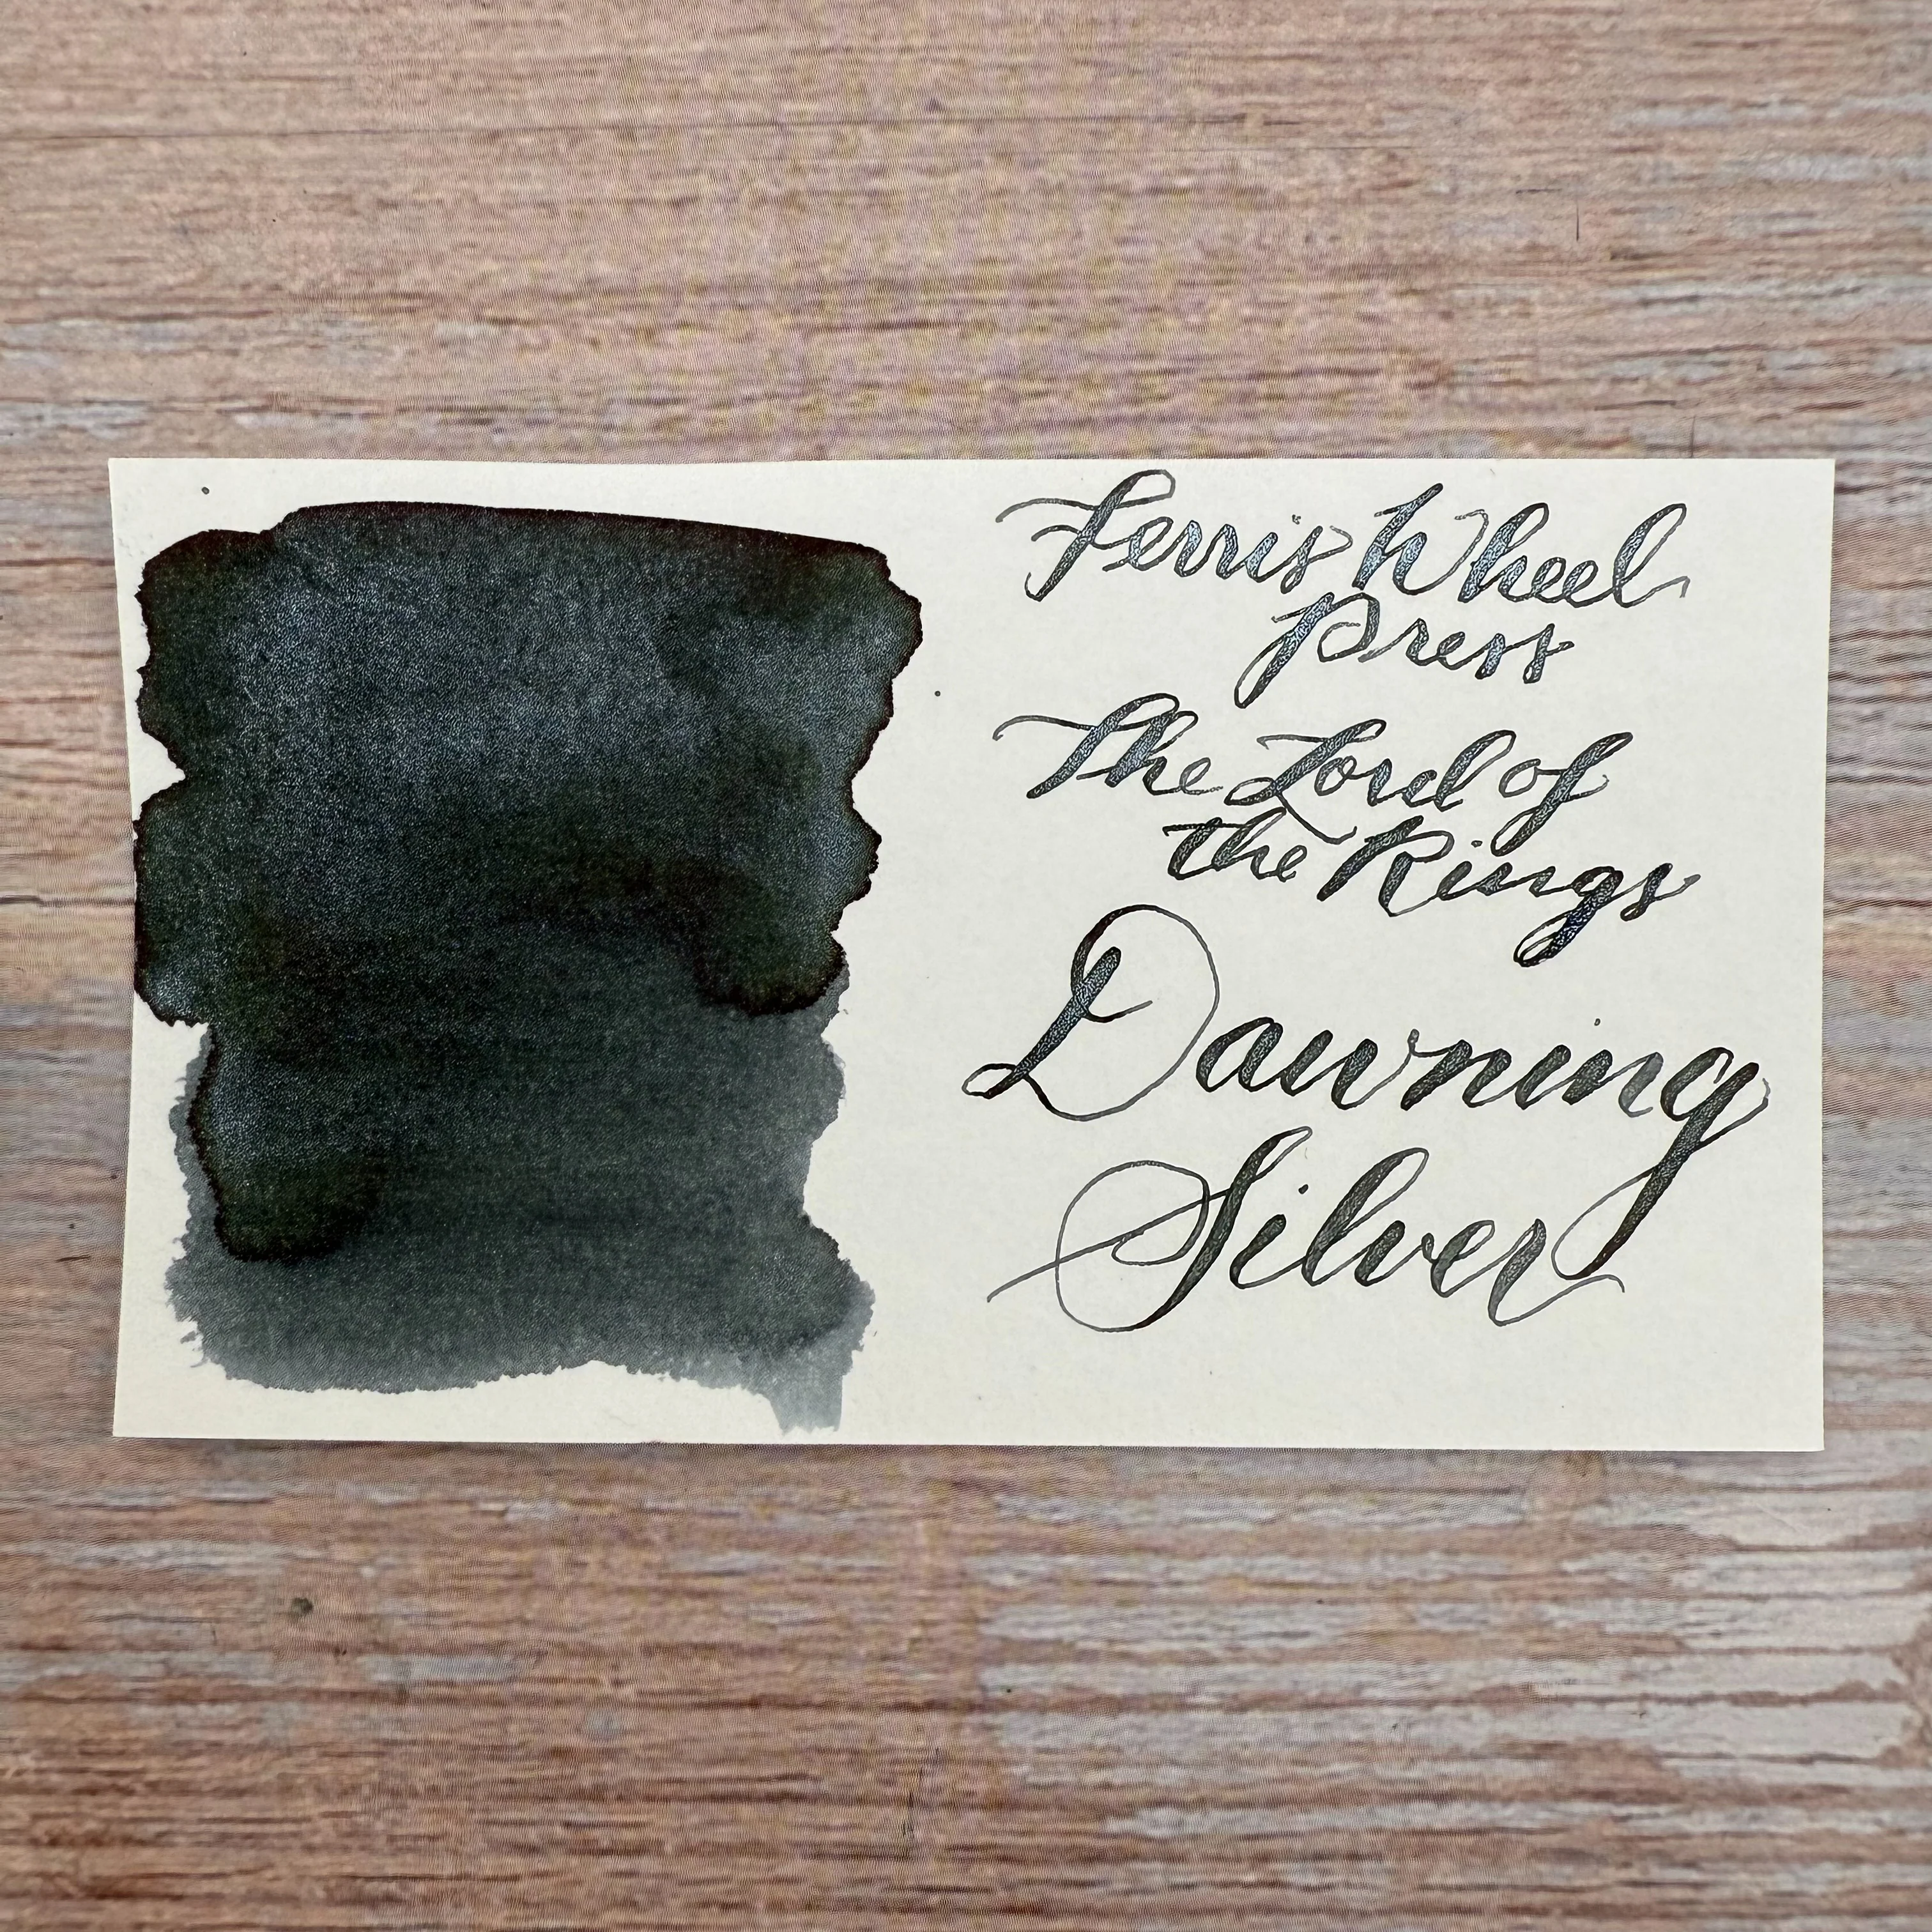 Ferris Wheel
Press
The Lord of
the Rings
Dawning
Silver